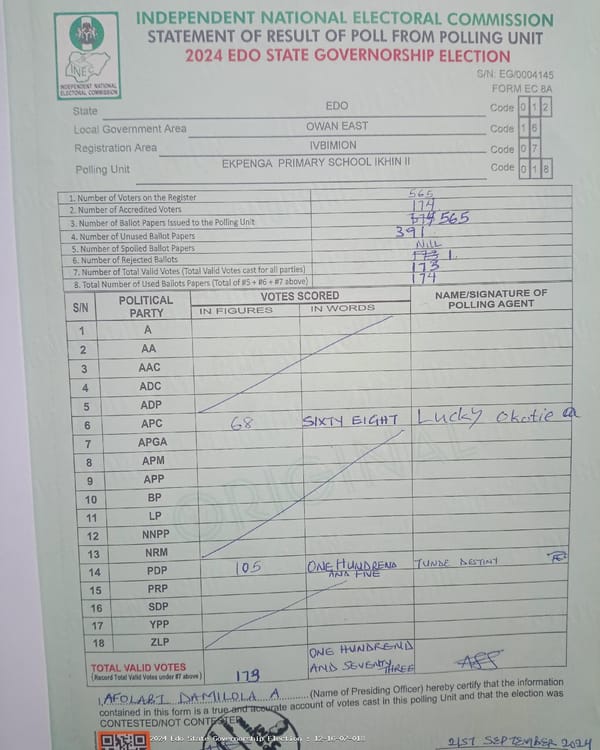 INDEPENDENT NATIONAL ELECTORAL COMMISSION
STATEMENT OF RESULT OF POLL FROM POLLING UNIT
2024 EDO STATE GOVERNORSHIP ELECTION
INEC
INDEPENDENT NATIONAL
ELECTORAL COMMISSION
S/N: EG/0004145
FORM EC 8A
State EDO Code 0 1 2
Local Government Area OWAN EAST Code 1 6
Registration Area IVBIMION Code 0 7
Polling Unit EKPENGA PRIMARY SCHOOL IKHIN II Code 0 1 8
1. Number of Voters on the Register 565
2. Number of Accredited Voters 174
3. Number of Ballot Papers Issued to the Polling Unit 565
4. Number of Unused Ballot Papers 391
5. Number of Spoiled Ballot Papers Nill
6. Number of Rejected Ballots 1
7. Number of Total Valid Votes (Total Valid Votes cast for all parties) 173
8. Total Number of Used Ballots Papers (Total of #5 + #6 + #7 above) 174
S/N POLITICAL PARTY VOTES SCORED NAME/SIGNATURE OF POLLING AGENT
IN FIGURES IN WORDS
1 A
2 AA
3 AAC
4 ADC
5 ADP
6 APC 68 SIXTY EIGHT Lucky Okotie
7 APGA
8 APM
9 APP
10 BP
11 LP
12 NNPP
13 NRM
14 PDP 105 ONE HUNDREND AND FIVE TUNDE DESTINY
15 PRP
16 SDP
17 YPP
18 ZLP
ORIGINAL
TOTAL VALID VOTES 173 ONE HUNDREND AND SEVENTY THREE
(Record Total Valid Votes under #7 above)
I, AFOLABI DAMILOLA A (Name of Presiding Officer) hereby certify that the information
contained in this form is a true and accurate account of votes cast in this polling Unit and that the election was
CONTESTED/NOT CONTESTED
2024 Edo State Governorship Election : 12-16-07-018
21ST SEPTEMBER 2024